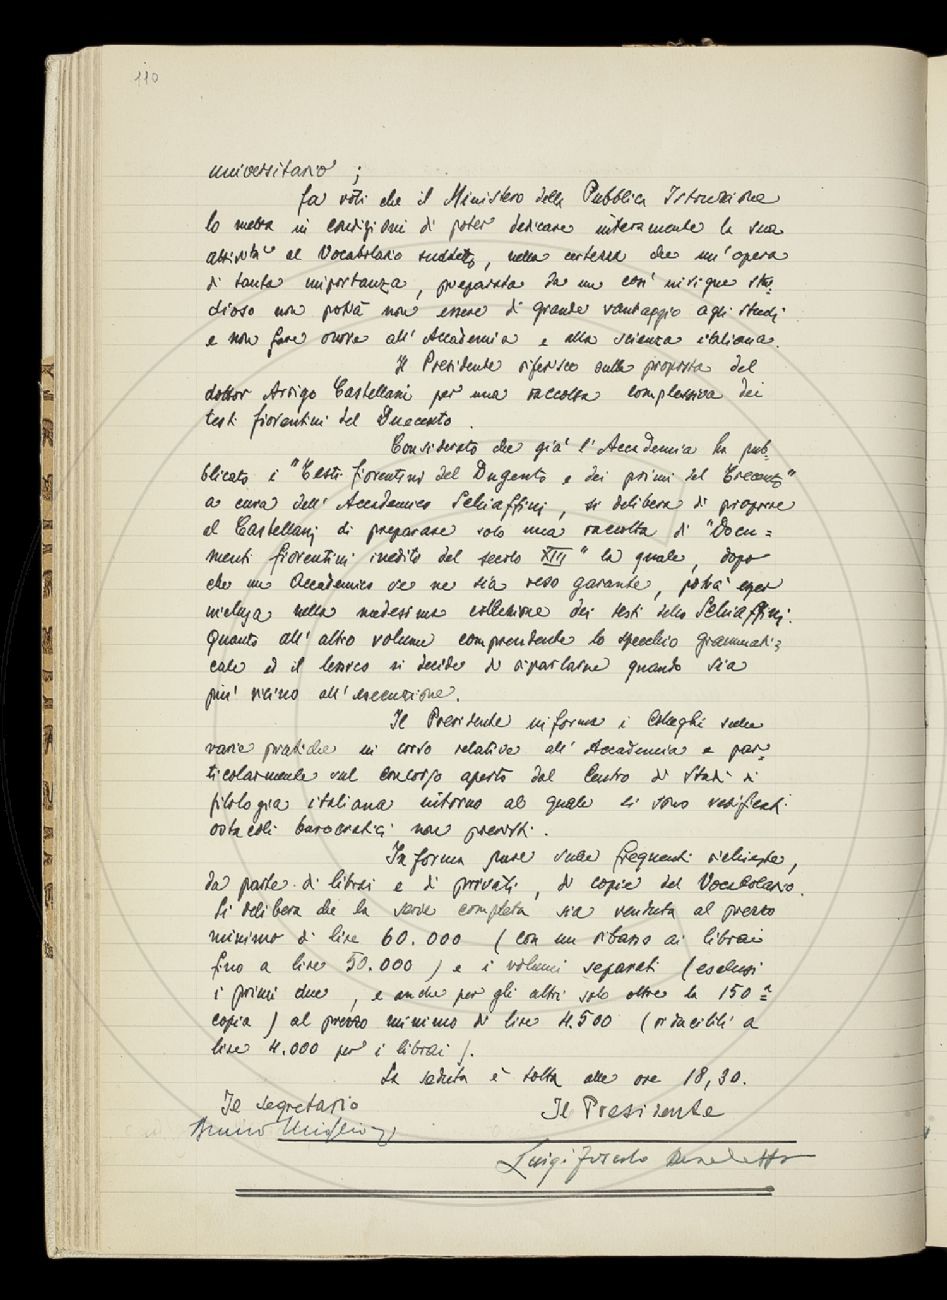 110
universitario ;
fa voti che il Ministero della Pubblica Istruzione
lo metta in condizioni di poter dedicare interamente la sua
attività al Vocabolario suddetto, nella certezza che un'opera
di tanta importanza, preparata da un così insigne stu-
dioso non potrà non essere di grande vantaggio agli studi
e non fare onore all'Accademia e alla scienza italiana.
Il Presidente riferisce sulla proposta del
dottor Arrigo Castellani per una raccolta complessiva dei
testi fiorentini del Duecento.
Considerato che già l'Accademia ha pub-
blicato i "Testi fiorentini del Dugento e dei primi del Trecento"
a cura dell'Accademico Schiaffini, si delibera di proporre
al Castellani di preparare solo una raccolta di "Docu=
menti fiorentini inediti del secolo XIII" la quale, dopo
che un Accademico se ne sia reso garante, potrà esser
inclusa nella medesima collezione dei testi dello Schiaffini.
Quanto all'altro volume comprendente lo specchio grammati=
cale ed il lessico si decide di riparlarne quando sia
più vicino all'esecuzione.
Il Presidente informa i Colleghi sulle
varie pratiche in corso relative all'Accademia e par-
ticolarmente sul concorso aperto dal Centro di Studi di
filologia italiana intorno al quale si sono verificati
ostacoli burocratici non previsti.
Informa pure sulle frequenti richieste,
da parte di librai e di privati, di copie del Vocabolario.
Si delibera che la serie completa sia venduta al prezzo
minimo di lire 60.000 (con un ribasso ai librai
fino a lire 50.000) e i volumi separati (esclusi
i primi due, e anche per gli altri solo oltre la 150ª
copia) al prezzo minimo di lire 4.500 (riducibili a
lire 4.000 per i librai).
La seduta è tolta alle ore 18,30.
Il segretario Il Presidente
Bruno Migliorini
Luigi Foscolo Benedetto